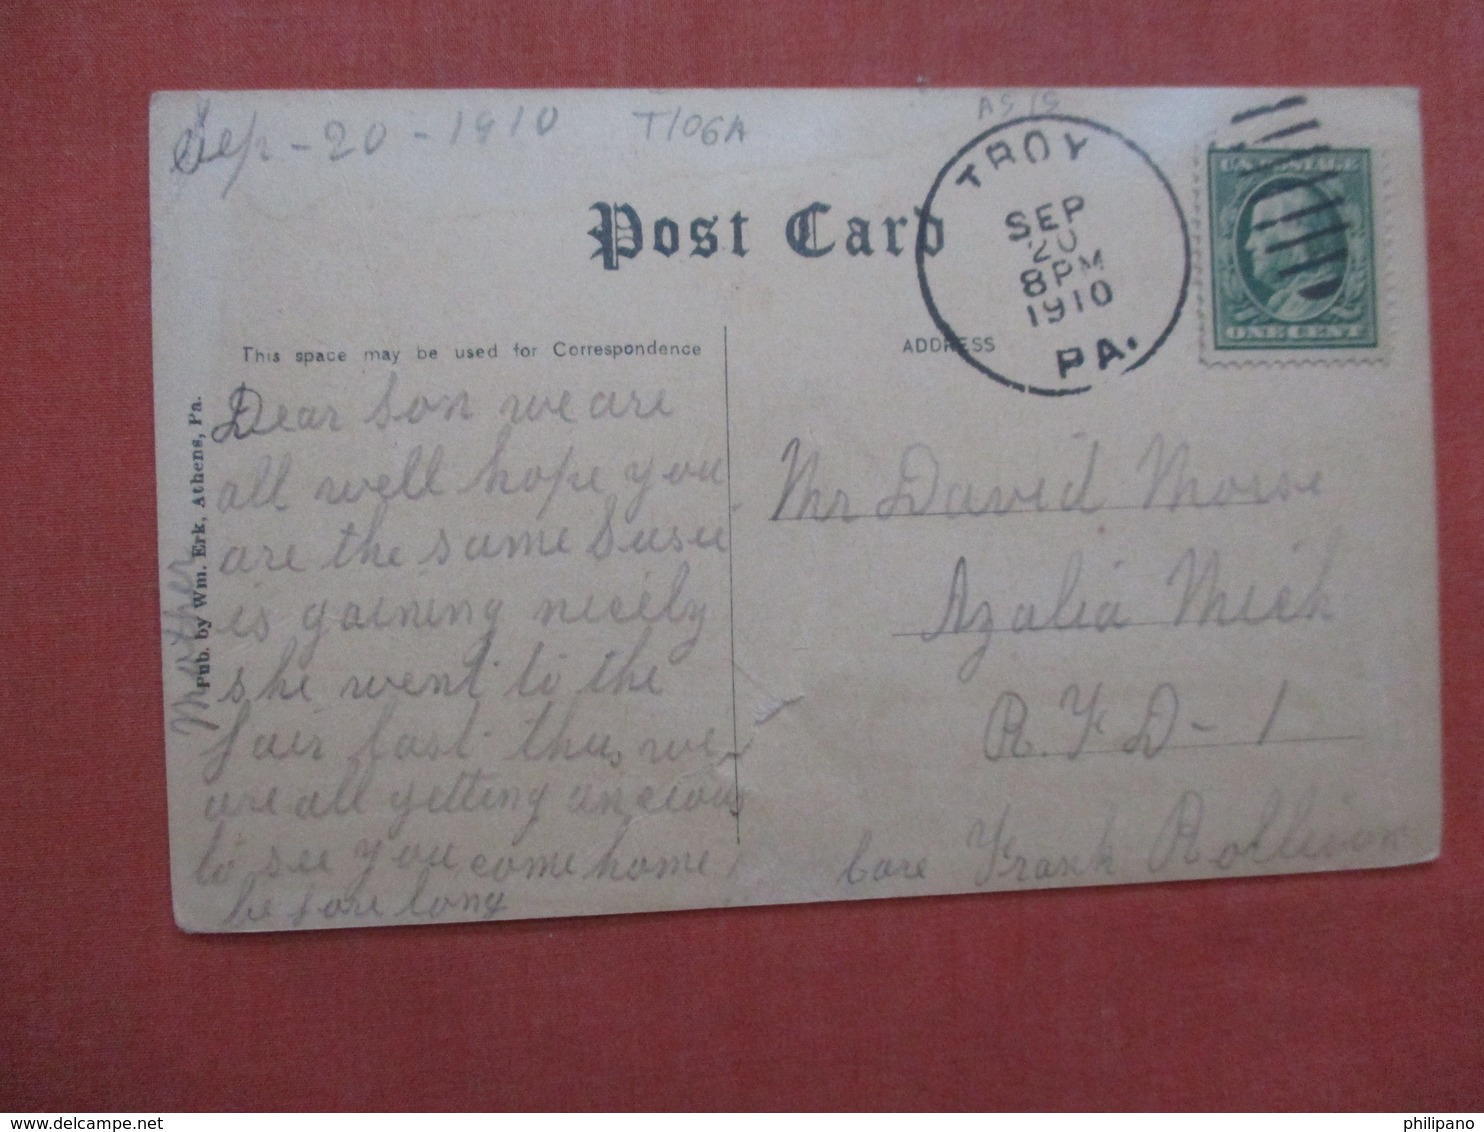 Sep - 20 - 1910
T106A
AS IS
Post Card
TROY
SEP
20
8 PM
1910
PA.
U.S. POSTAGE
ONE CENT
This space may be used for Correspondence
ADDRESS
Pub. by Wm. Erk, Athens, Pa.
Dear Son we are
all well hope you
are the same Susie
is gaining nicely
she went to the
fair last thus we
are all getting ancious
to see you come home
before long
Mother
Mr David Morse
Azalia Mich
R. F D - 1
Care Frank Rollison
philipano